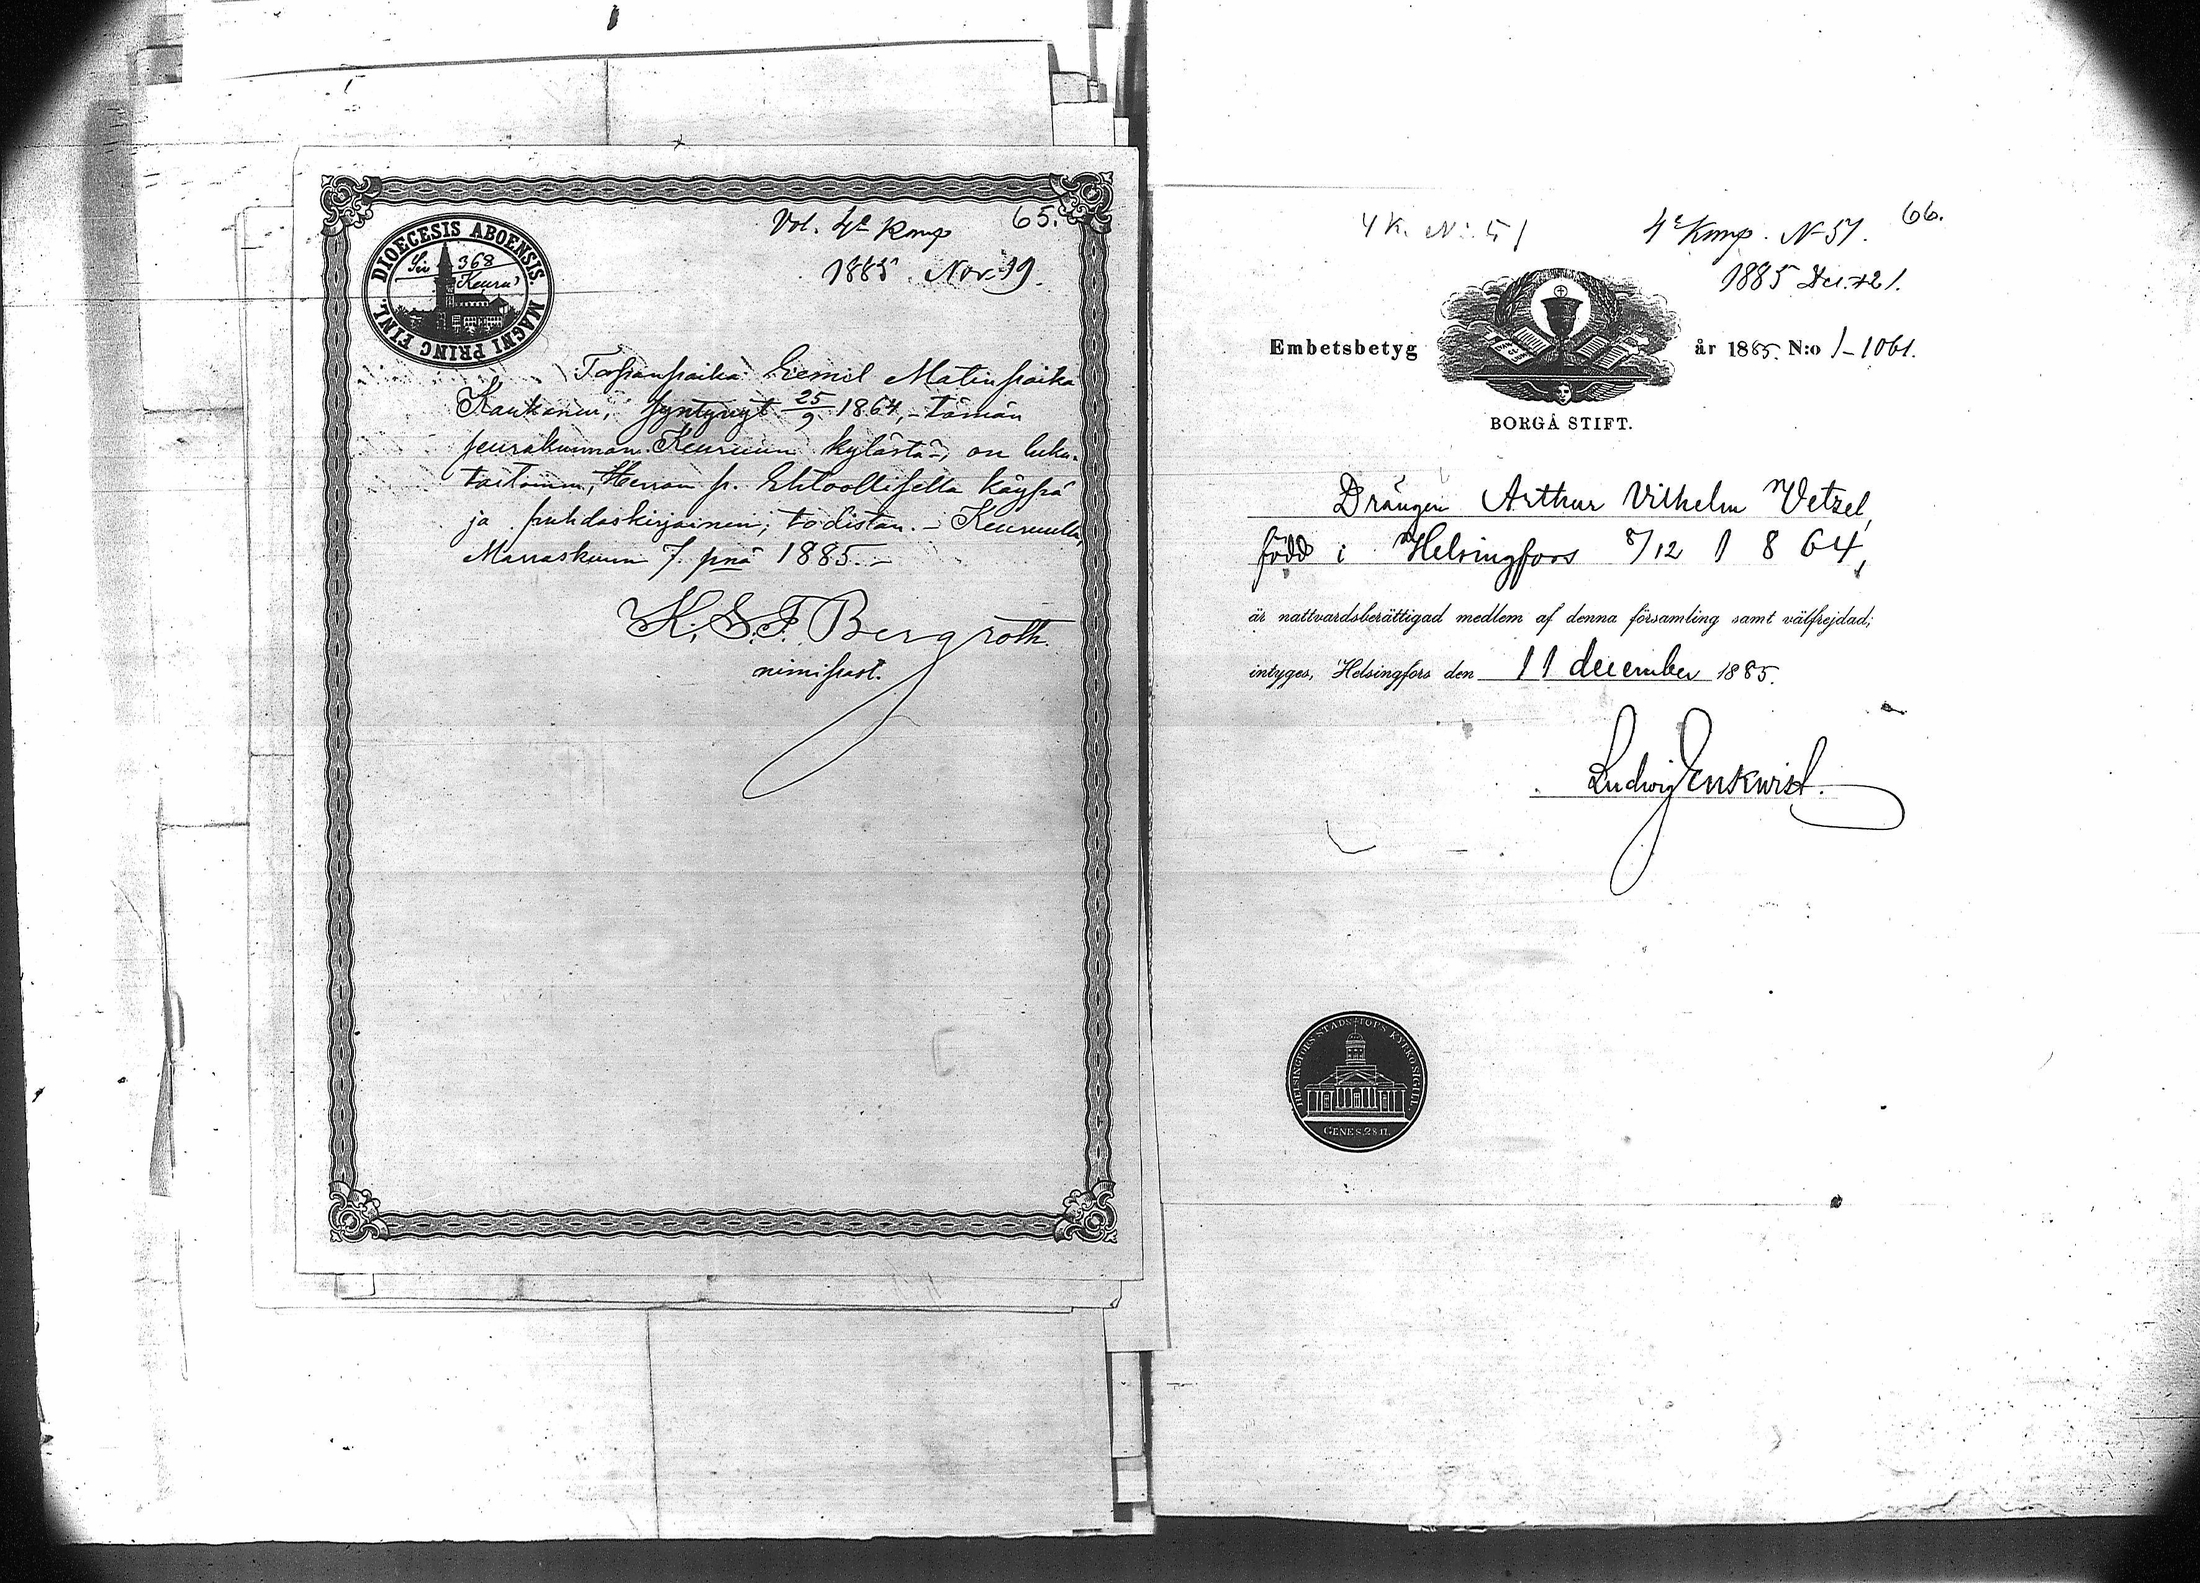 Vol. 4e Komp 65.
1885 Nov. 19.
DIOECESIS ABOENSIS MAGNI PRINC FINL.
Siv 368
Keuru
Talonpoika Eemil Matinpoika
Kautonen, syntynyt 25/9 1864, tämän
seurakunnan Keuruun kylästä, on luku-
taitoinen, Herran p. Ehtoollisella käypä
ja puhdaskirjainen; todistan. – Keuruulla,
Marraskuun 7. pnä 1885. –
K. S. F. Bergroth.
nimismt.
4 K. No 51
4e Komp. No 51. 66.
1885 Dec. 21.
Embetsbetyg
år 1885. N:o 1–1061.
BORGÅ STIFT.
Drängen Arthur Vilhelm Wetzel,
född i Helsingfors 8/12 1864,
är nattvardsberättigad medlem af denna församling samt välfrejdad;
intyges, Helsingfors den 11 december 1885.
Ludvig Jenskwist.
HELSINGFORS STADS TOPS KYRKOSIGILL.
GENES. 28.17.